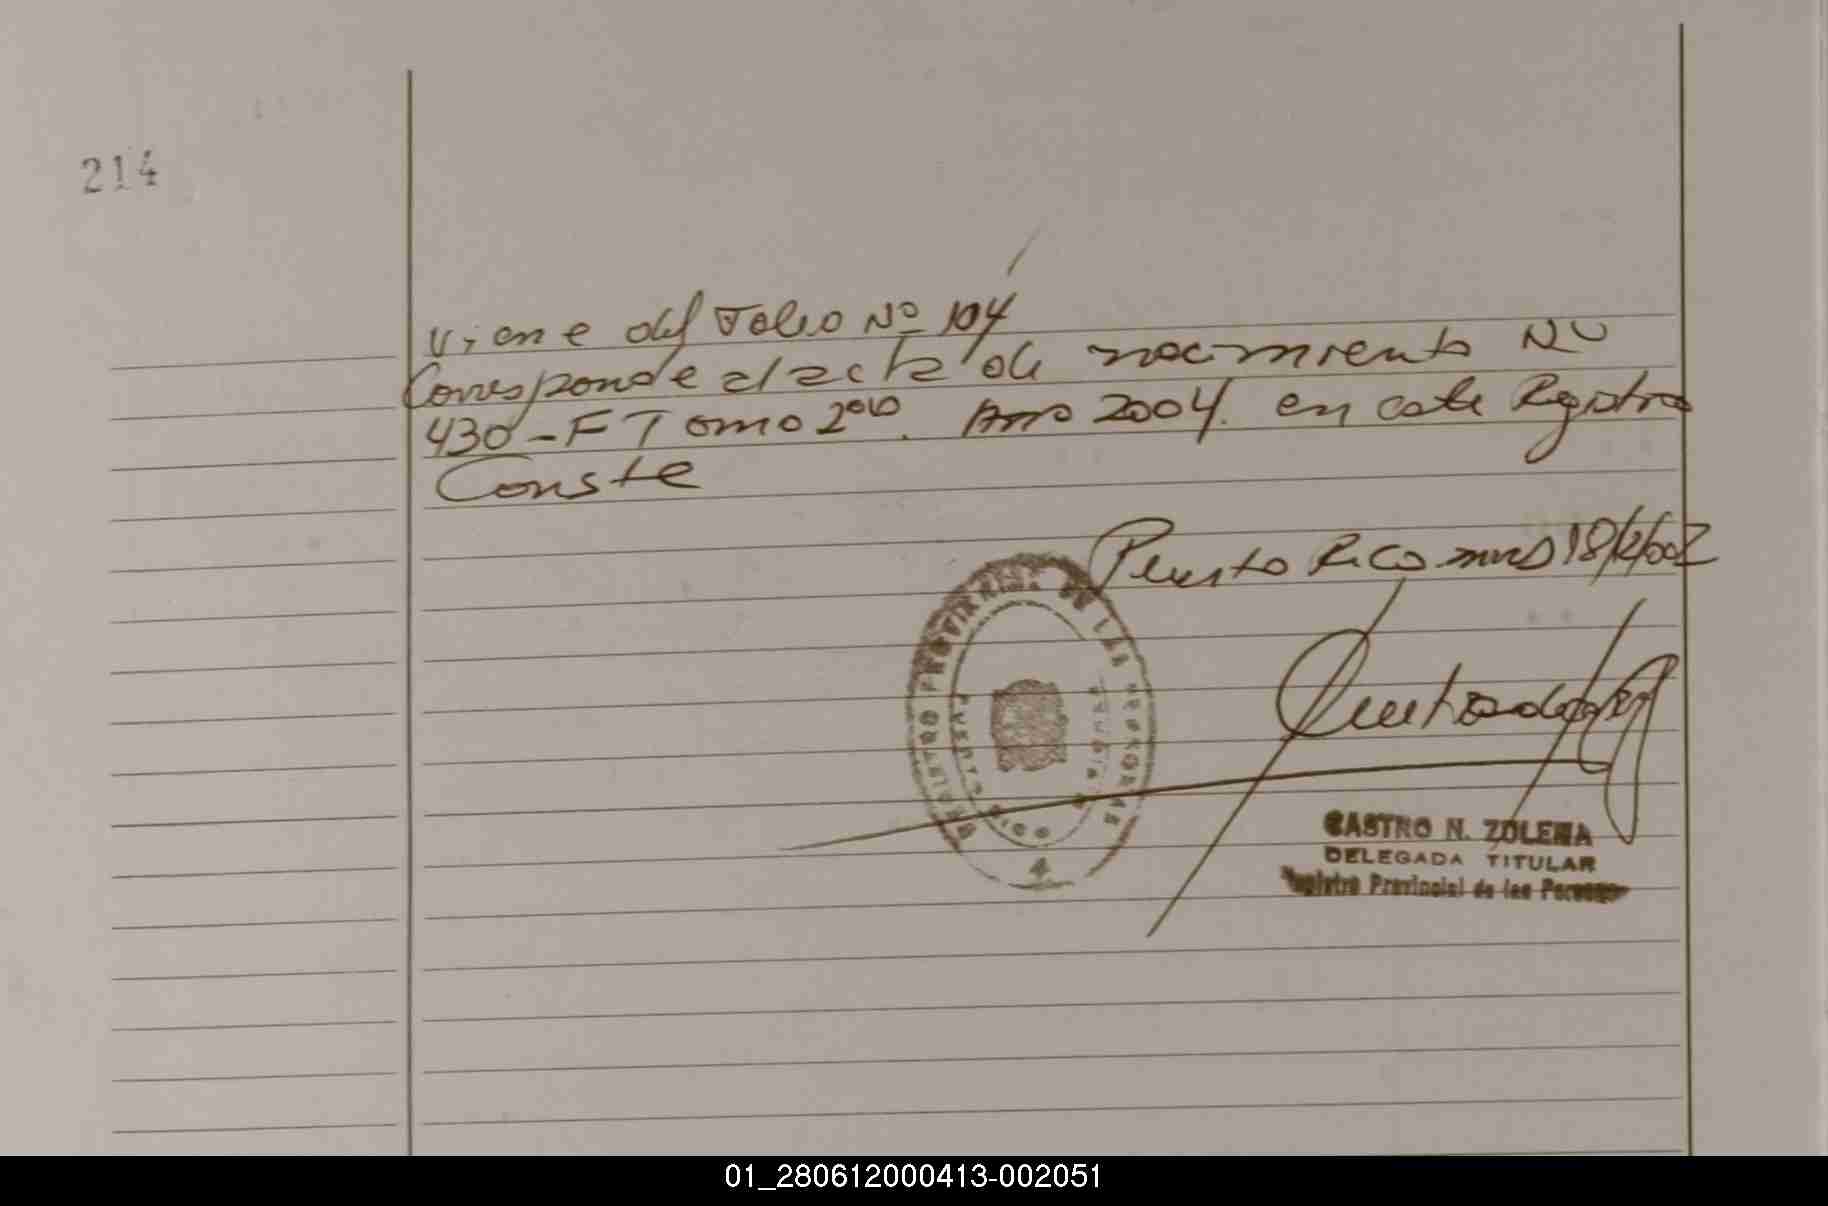 214
Viene del Folio Nº 104
Corresponde al acta de nacimiento Nº
430-F Tomo 2do. Año 2004. en este Registro
Conste
Puerto Rico mnes 18/
REGISTRO PROVINCIAL DE LAS PERSONAS
PUERTO RICO
4
CASTRO N. ZOLEMA
DELEGADA TITULAR
Registro Provincial de las Personas
01_280612000413-002051